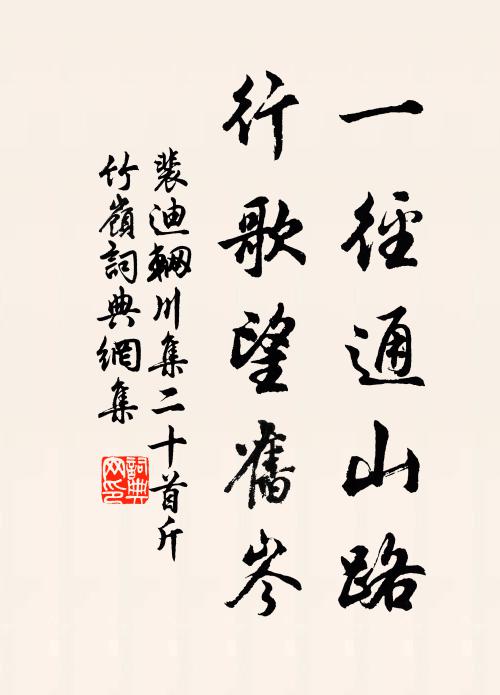 一徑通山路
行歌望舊岑
裴迪輞川集二十首斤
竹嶺詞典網集
詞典
网印